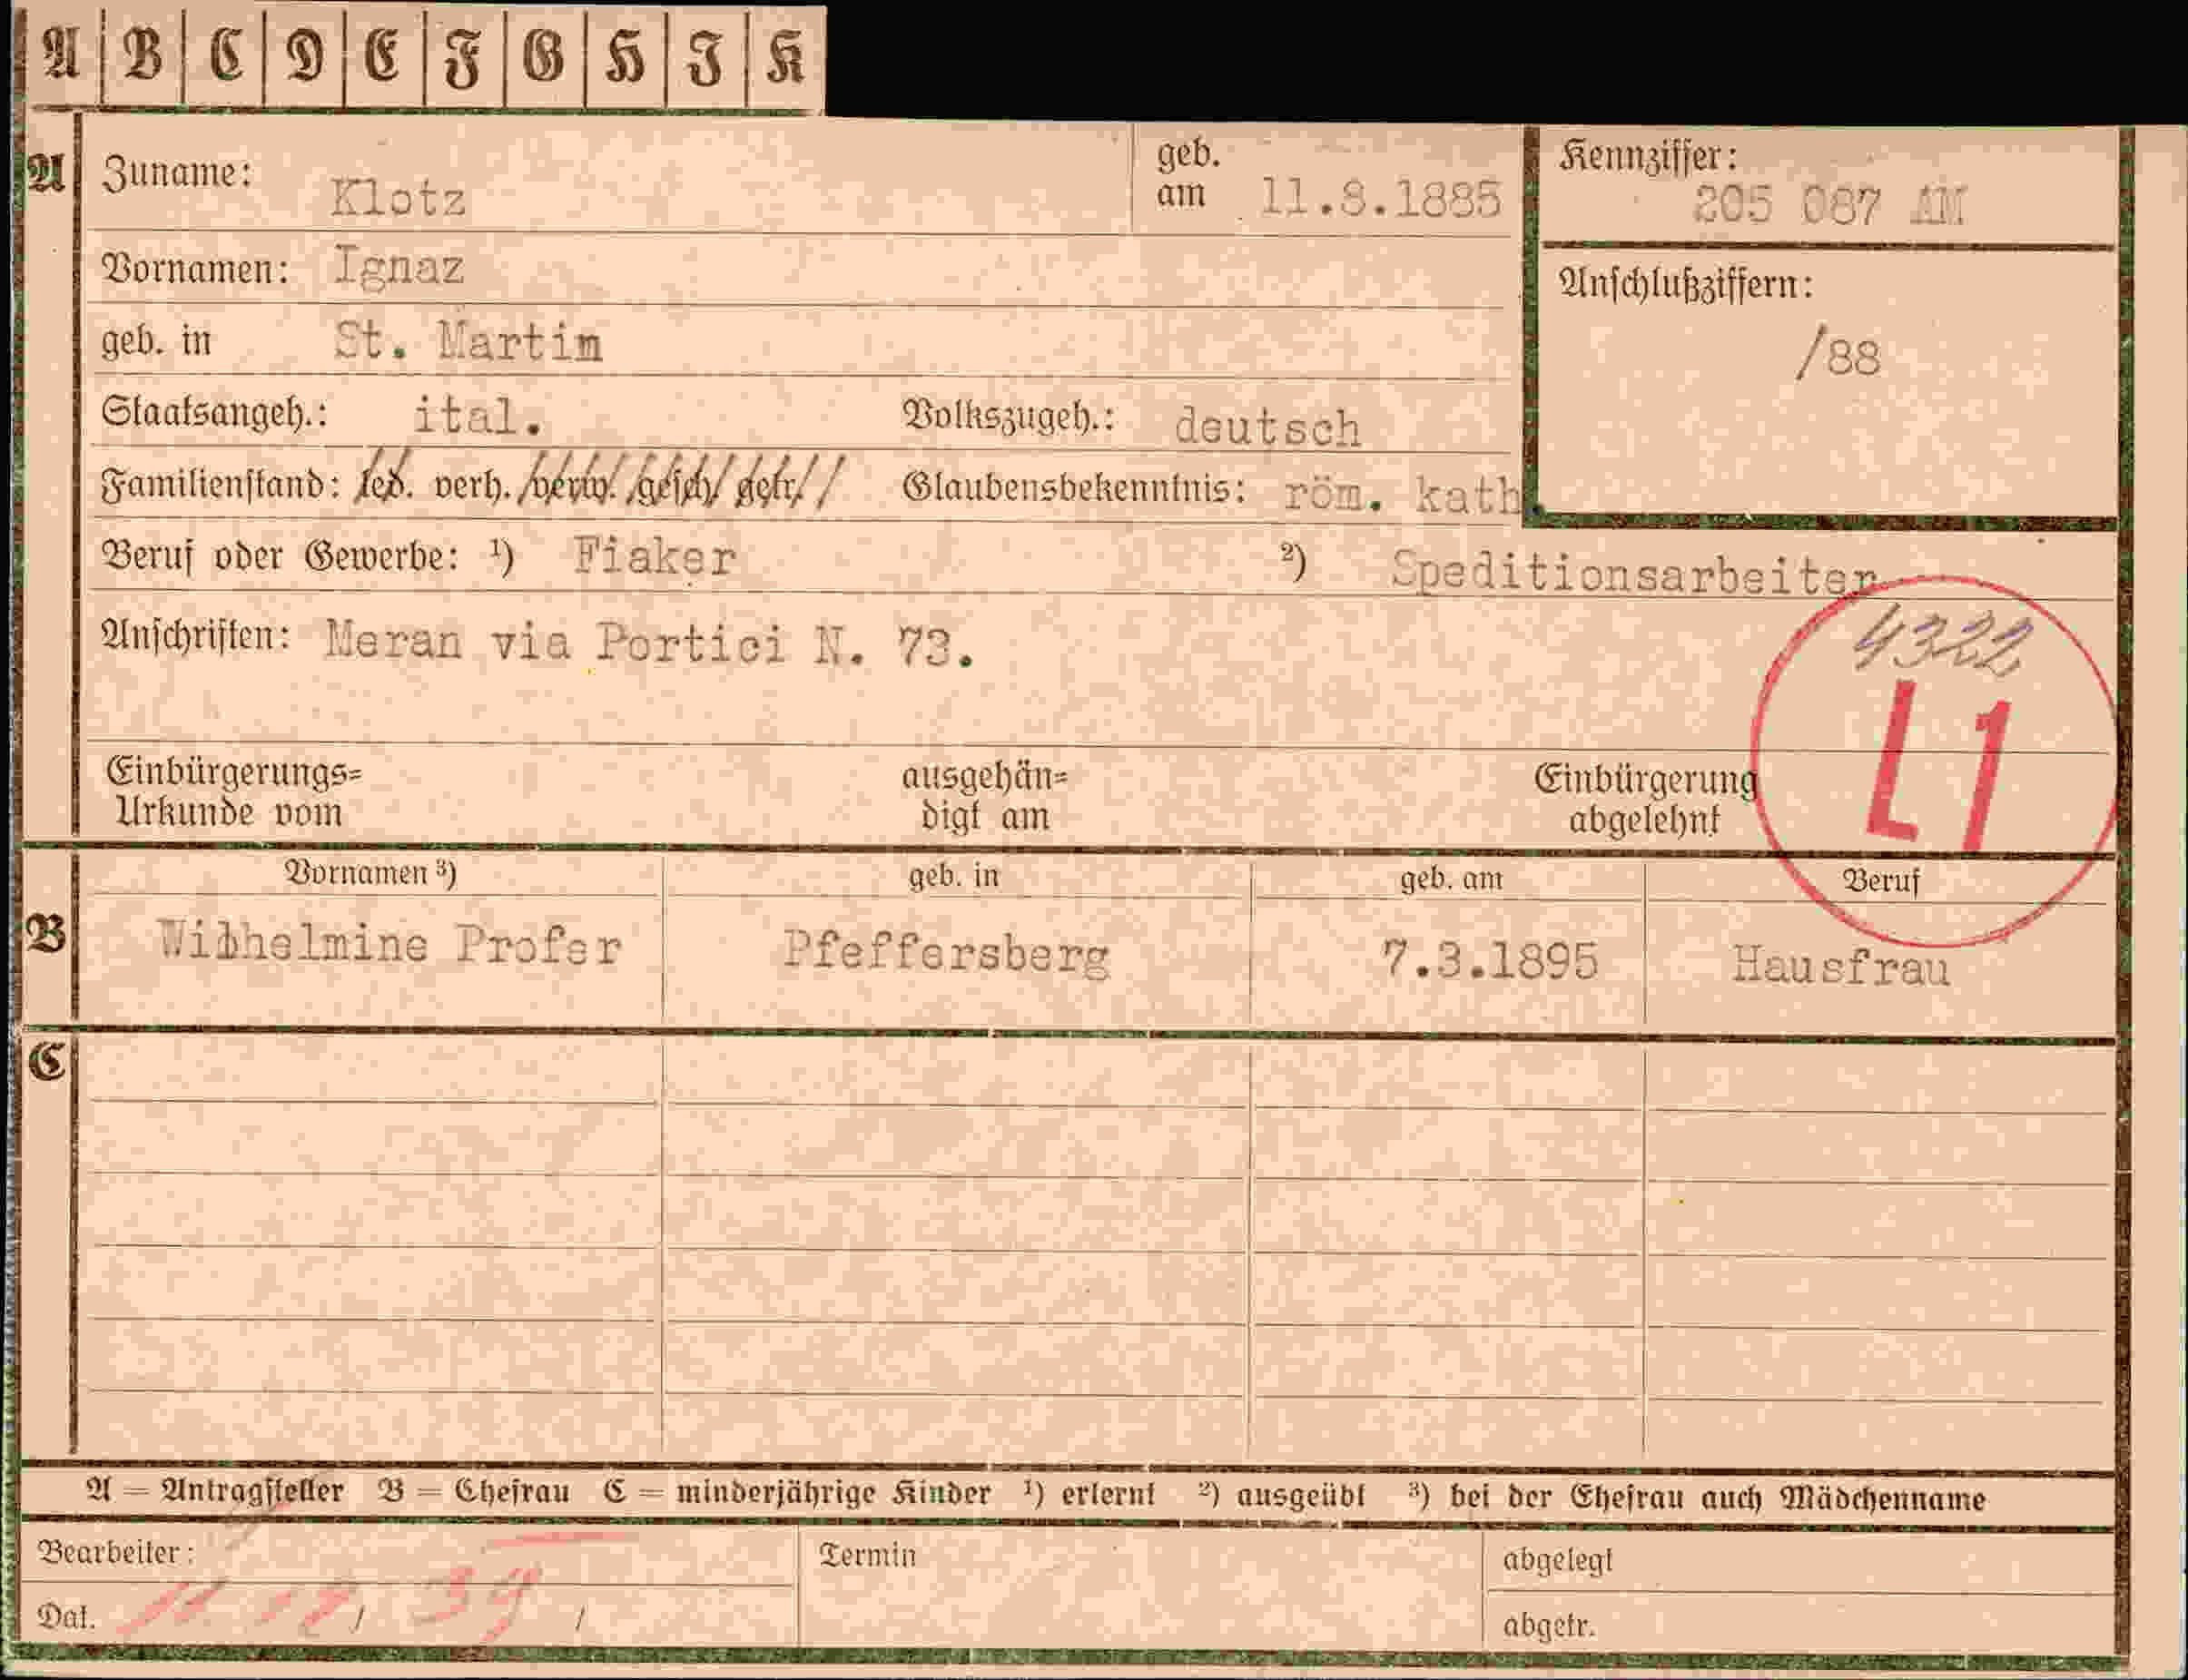 A B C D E F G H I K
A Zuname: Klotz geb. am 11.8.1885
Kennziffer: 205 087 AM
Vornamen: Ignaz
Anschlußziffern: /88
geb. in St. Martin
Staatsangeh.: ital. Volkszugeh.: deutsch
Familienstand: led. verh. verw. gesch. getr. Glaubensbekenntnis: röm. kath.
Beruf oder Gewerbe: ¹) Fiaker ²) Speditionsarbeiter
Anschriften: Meran via Portici N. 73.
4322
L1
Einbürgerungs= Urkunde vom ausgehän= digt am Einbürgerung abgelehnt
Vornamen ³) geb. in geb. am Beruf
B Wilhelmine Profer Pfeffersberg 7.3.1895 Hausfrau
C
A = Antragsteller B = Ehefrau C = minderjährige Kinder ¹) erlernt ²) ausgeübt ³) bei der Ehefrau auch Mädchenname
Bearbeiter: Termin abgelegt
Dat. / 39 / abgetr.